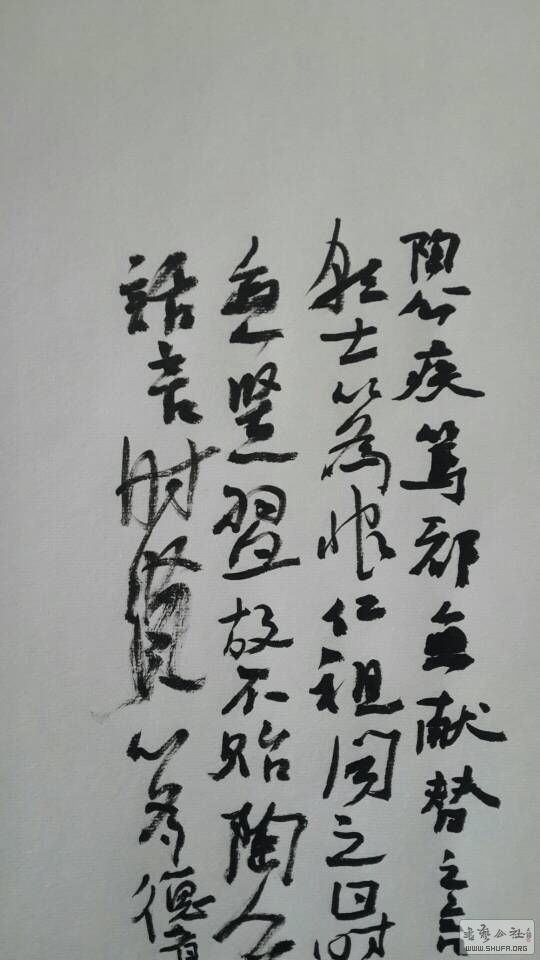 陶公疾篤都無献替之言
朝士以為恨仁祖聞之曰时
無竖刁故不貽陶公
話言时賢以為德音
WWW.SHUFA.ORG